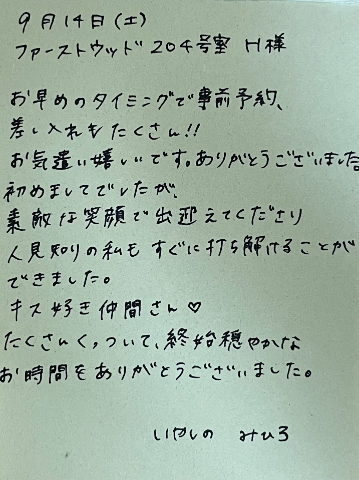 9月14日(土)
ファーストウッド204号室 H様
お早めのタイミングで事前予約、
差し入れもたくさん!!
お気遣い嬉しいです。ありがとうございました。
初めましてでしたが、
素敵な笑顔で出迎えてくださり
人見知りの私もすぐに打ち解けることが
できました。
キス好き仲間さん♡
たくさんくっついて、終始穏やかな
お時間をありがとうございました。
いやしの みひろ